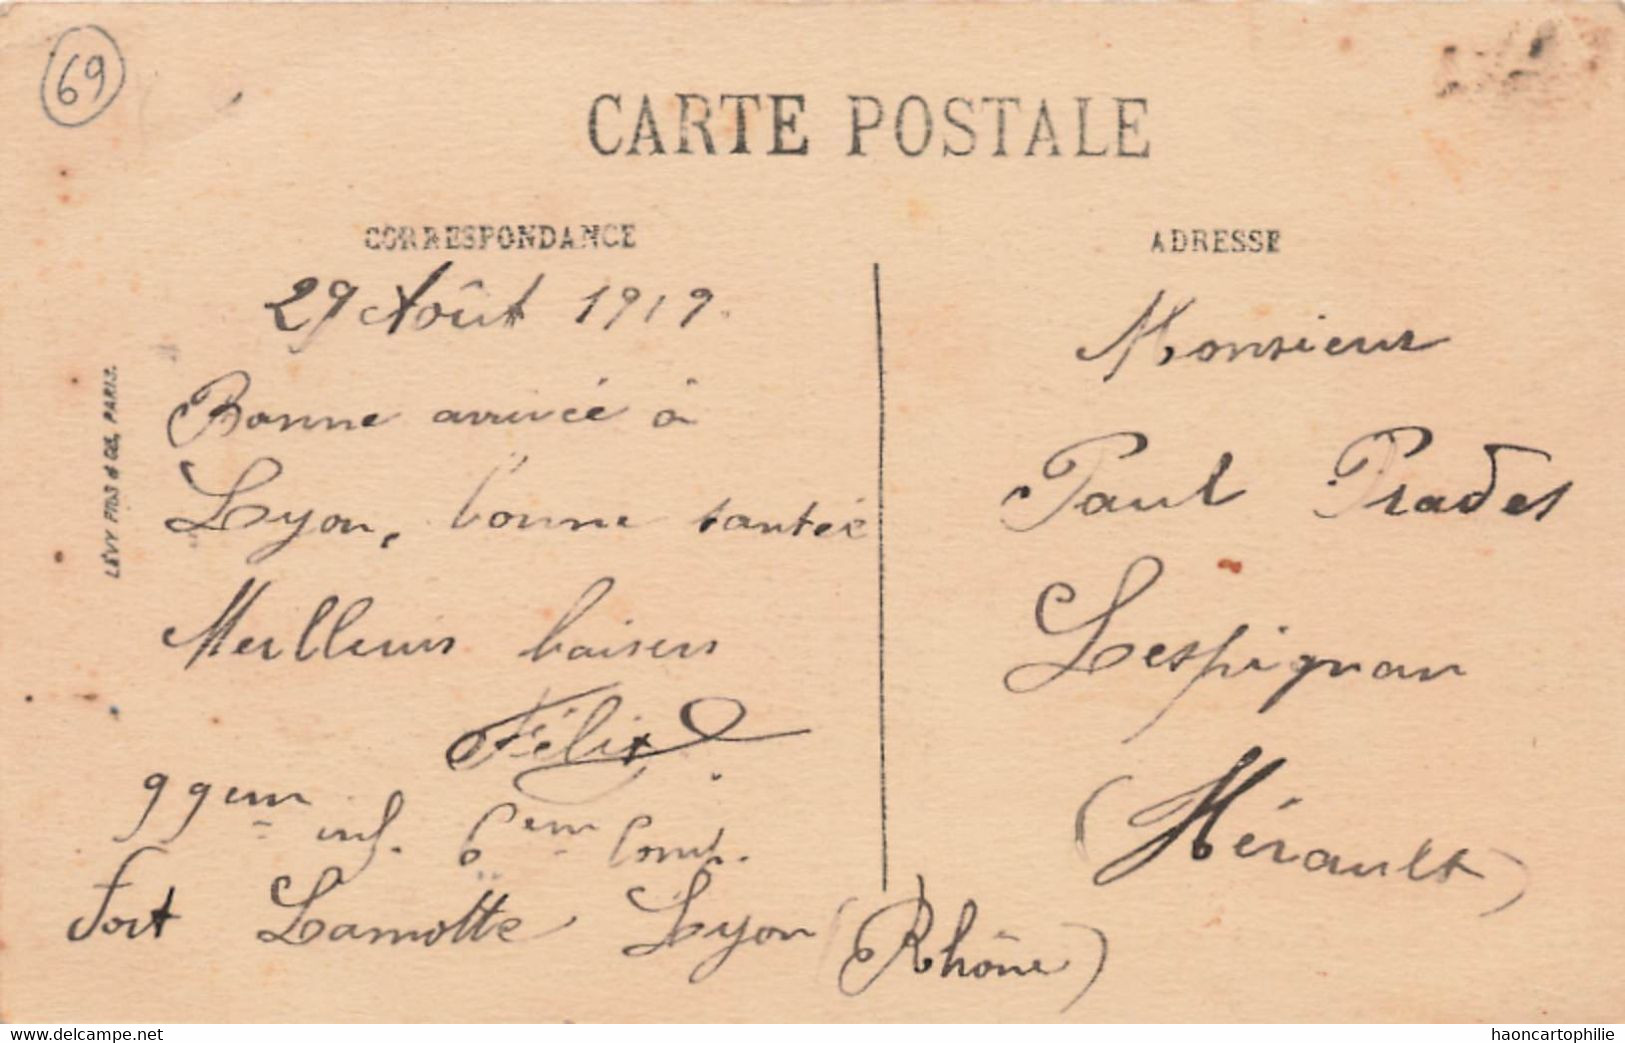 69
CARTE POSTALE
CORRESPONDANCE
29 Août 1919.
Bonne arrivée à
Lyon, bonne santée
Meilleurs baisers
Félix
99em inf. 6em Comp.
Fort Lamotte Lyon (Rhône)
ADRESSE
Monsieur
Paul Prades
Lespignan
(Hérault)
LÉVY FILS & CIE, PARIS.
www.delcampe.net
haoncartophilie